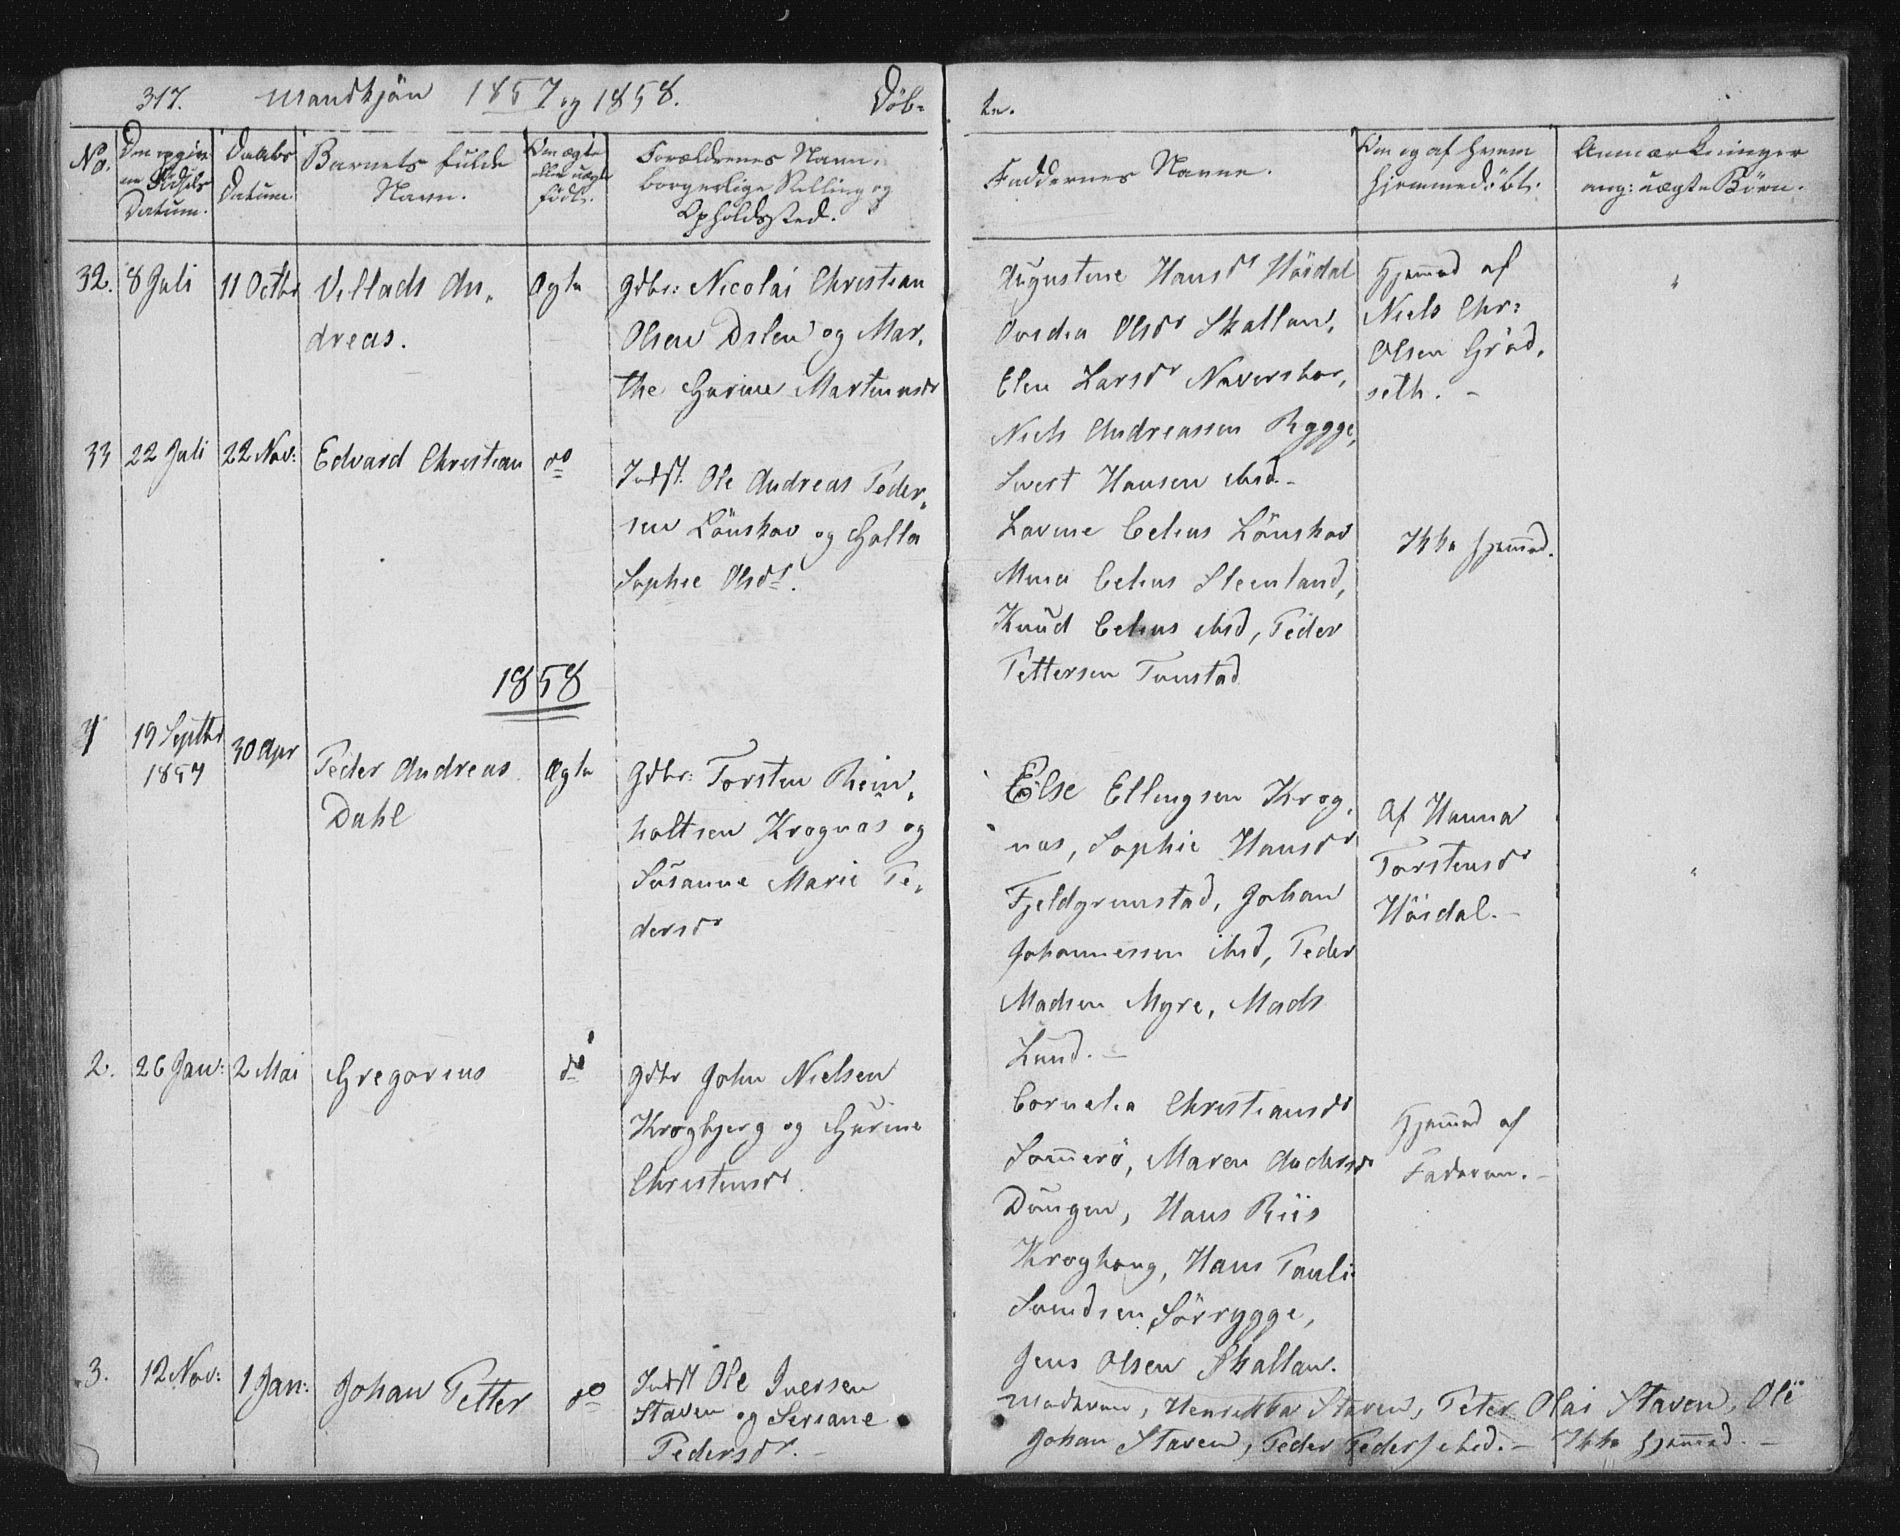 317. Mandkjön 1857 og 1858. Döb-
te.
No.
Den opgiv-
ne Födsels
Datum.
Daabs
Datum
Barnets fulde
Navn.
Om ægte
eller uægte
födt.
Forældrenes Navn,
borgerlige Stilling og
Opholdssted.
Faddernes Navne.
Om og af hvem
hjemmedöbt.
Anmærkninger
ang: uægte Börn.
32. 8 Juli 11 Octbr Villads An-
dreas.
Ægte
Gdbr: Nicolai Christian
Olsen Dalen og Mar-
the Gurine Martinusdr
Augustine Hansdr Höidal
Ovedia Olsdr Skallan,
Elen Larsdr Naverskar,
Niels Andreassen Rygge,
Sivert Hansen ibid.-
Hjemmed af
Niels Chr:
Olsen Gröd-
seth. -
"
33 22 Juli 22 Nov: Edvard Christian do
Indst. Ole Andreas Peder-
sen Lönskov og Golla
Sophie Olsdr.
Lavine Celius Lönskov
Celius Steenland,
Knud Celius ibid, Peder
Pettersen Tunstad
Ikke hjemmed.
1858
1 19 Septbr
1857
30 Apr
Peder Andreas
Dahl
Ægte
Gdbr: Torsten Rein-
holtsen Krognæs og
Susanne Marie Pe-
dersdr
Else Ellingsen Krog-
næs, Sophie Hansdr
Fjeldgrunstad, Johan
Johannessen ibid, Peder
Madsen Myre, Mads
Lund. -
Af Hanna
Torstensdr
Höidal. -
"
2. 26 Jan: 2 Mai Gregorius do
Gdbr John Nielsen
Krogbjerg og Gurine
Christensdr.
Cornelia Christiansdr
Sommerö, Maren Andersdr
Dungen, Hans Riis
Kroghaug, Hans Pauli
Svendsen Sörrygge,
Jens Olsen Skallan.
Hjemmed af
Faderen. -
3. 12 Nov: 1 Jan: Johan Petter do
Indst Ole Iversen
Staven og Seriane
Pedersdr. -
Moderen, Henrikke Staven, Peter Olai Staven, Ole
Johan Staven, Peder Peders ibid. - Ikke hjemmed. -